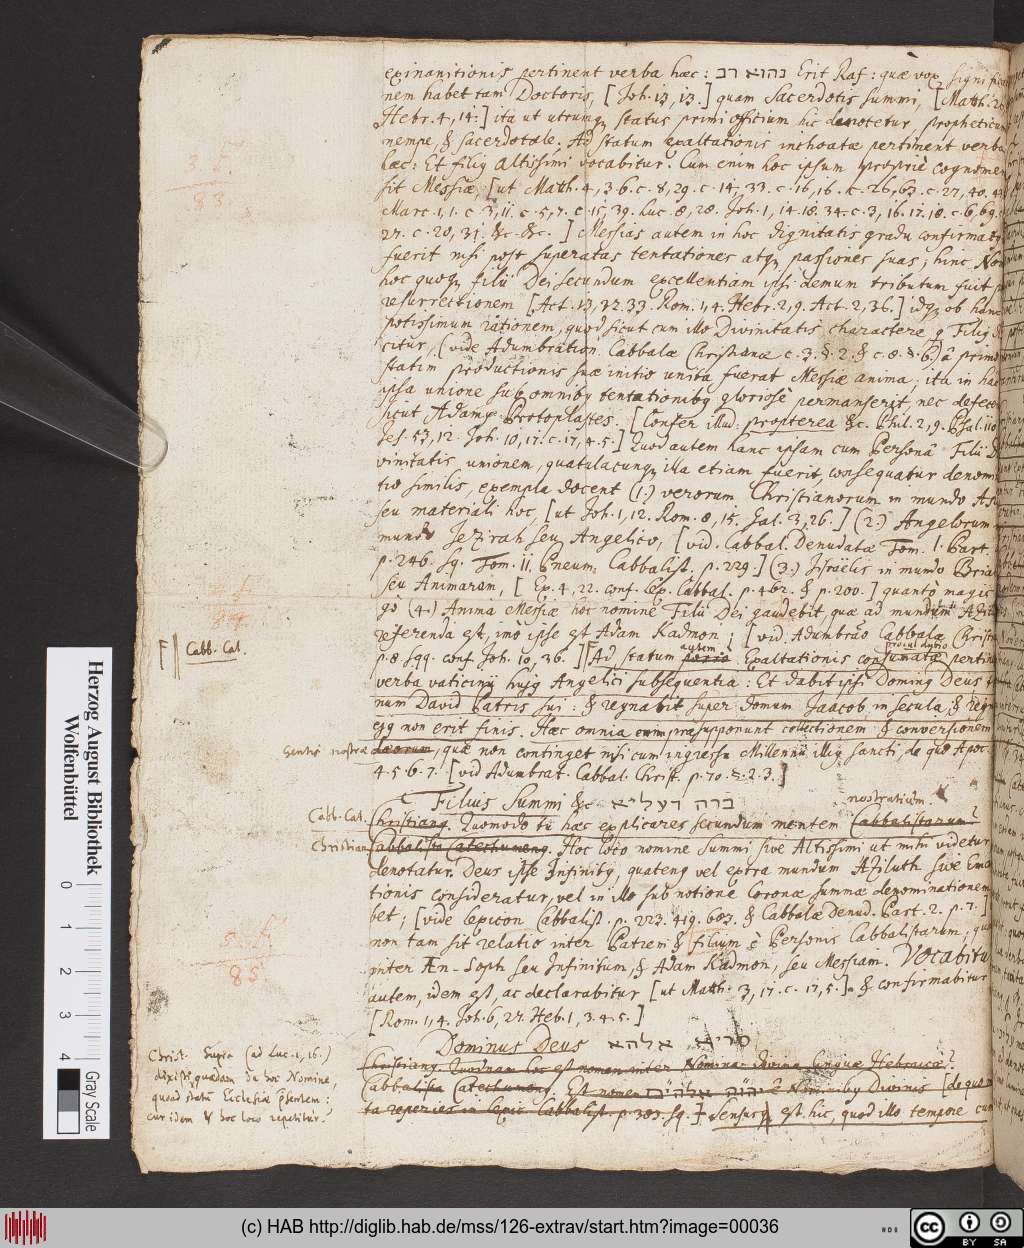 exinanitionis pertinent verba hæc: נהוא רב Erit Raf: quæ vox signifi
nem habet tam Doctoris, [Joh. 13, 13.] quam Sacerdotis summi, [Matth.
Hebr. 4, 14.] ita ut utrumq; status primi officium hic denotetur propheticum
nempe, & sacerdotale. Ad statum exaltationis inchoatæ pertinent verba
hæc: Et filiq altissimi vocabitur. Cum enim hoc ipsum propriè cognomen
sit Messiæ, [ut Matth. 4, 3. 6. c. 8, 29. c. 14, 33. c. 16, 16. c. 26, 63. c. 27, 40. 43
Marc. 1, 1. c. 3, 11. c. 5, 7. c. 15, 39. Luc. 8, 28. Joh. 1, 14. 18. 34. c. 3, 16. 17. 18. c. 6, 69.
27. c. 20, 31. &c. &c.] Messias autem in hoc dignitatis gradu confirmatq
fuerit nisi post superatas tentationes atq; passiones suas; hinc No
hoc quoq; filii Dei secundum excellentiam ipsi demum tributum fuit p
resurrectionem [Act. 13, 32. 33. Rom. 1, 4. Hebr. 2, 9. Act. 2, 36.] idq; ob hanc
potissimum rationem, quod sicut cum illo Divinitatis charactere q Filiq
citur, (vide Adumbration. Cabbalæ Christianæ c. 3. §. 2. & c. 8. §. 6.) â primo
statim productionis suæ initio unita fuerat Messiæ anima; ita in hac
ipsa unione sub omnibq tentationibq gloriosè permanserit, nec defece
sicut Adamq Protoplastes. [Confer illud: propterea &c. Phil. 2, 9. Psal. 110
Jes. 53, 12. Joh. 10, 17. c. 17, 4. 5.] Quod autem hanc ipsam cum Persona Filii D
vinitatis unionem, quatulacunq; illa etiam fuerit, consequatur denomi
tio similis, exempla docent (1.) verorum Christianorum in mundo Asi
seu materiali hoc, [ut Joh. 1, 12. Rom. 8, 15. Gal. 3, 26.] (2.) Angelorum
mundo Jezirah seu Angelico, [vid. Cabbal. Denudatæ Tom. I. Part.
p. 246. sq. Tom. II. Pneum. Cabbalist. p. 229.] (3.) Israelis in mundo Bria
seu Animarum, [Ex. 4, 22. conf. Lex. Cabbal. p. 462. & p. 200.] quanto magis
gò (4.) Anima Messiæ hoc nomine Filii Dei gaudebit, quæ ad mundum Azil
referenda est, imo ipse est Adam Kadmon; [vid. Adumbrão Cabbalæ Christi
F || Cabb. Cat.
p. 8 sqq. conf. Joh. 10, 36.] F Ad statum autem Exaltationis consumatæ pertin
verba vaticinii hujq Angelici subsequentia: Et dabit ipsi Dominq Deus
num David Patris sui: & regnabit super domum Jaacob in secula, & regn
ejq non erit finis. Hæc omnia cum præsupponunt collectionem & conversionem
Gentis nostræ, quæ non continget nisi cum ingressu Millennii illiq Sancti, de quo Apoc.
4. 5. 6. 7. [vid Adumbrat. Cabbal. Christ. p. 70. §. 2. 3.]
Filius Summi &c. ברה דעליא
nostratium.
Cabb. Cat. Christianq. Quomodo tu hæc explicares secundum mentem Cabbalistarum?
Christian Cabbalista Catechumenq. Hoc loco nomine Summi sive Altissimi ut mihi videtur
denotatur Deus ipse Infinitq, quateng vel extra mundum Aziluth sive Ema
tionis consideratur, vel in illo sub notione Coronæ summæ denominationem
bet; [vide Lexicon Cabbalist. p. 223. 419. 603. & Cabbalæ Denud. Part. 2. p. 7.]
non tam sit relatio inter Patrem & filium è Personis Cabbalistarum; qua
inter Æn-Soph seu Infinitum, & Adam Kadmon, seu Messiam. Vocabitu
autem, idem est, ac declarabitur [ut Matth. 3, 17. c. 17, 5.] & confirmabitur
[Rom. 1, 4. Joh. 6, 27. Heb. 1, 3. 4. 5.]
Dominus Deus מריא אלהא
Christ. Supra (ad Luc. 1, 16.)
dixisti quædam de hoc Nomine,
quoad statũ Ecclesiæ pñsentem:
cur idem & hoc loco repetitur?
Christianq Quodnam hoc est nomen inter Nomina Divina linguæ Hebraicæ?
Cabbalista Catechumenq Est nomen יהוה אלהים Nominibq Divinis [de quo
ta reperies in Lexic. Cabbalist. p. 383. sq.] Sensusq est hic, quod illo tempore cum
Herzog August Bibliothek
Wolfenbüttel
0 1 2 3 4
Gray Scale
(c) HAB http://diglib.hab.de/mss/126-extrav/start.htm?image=00036
HAB
cc BY SA